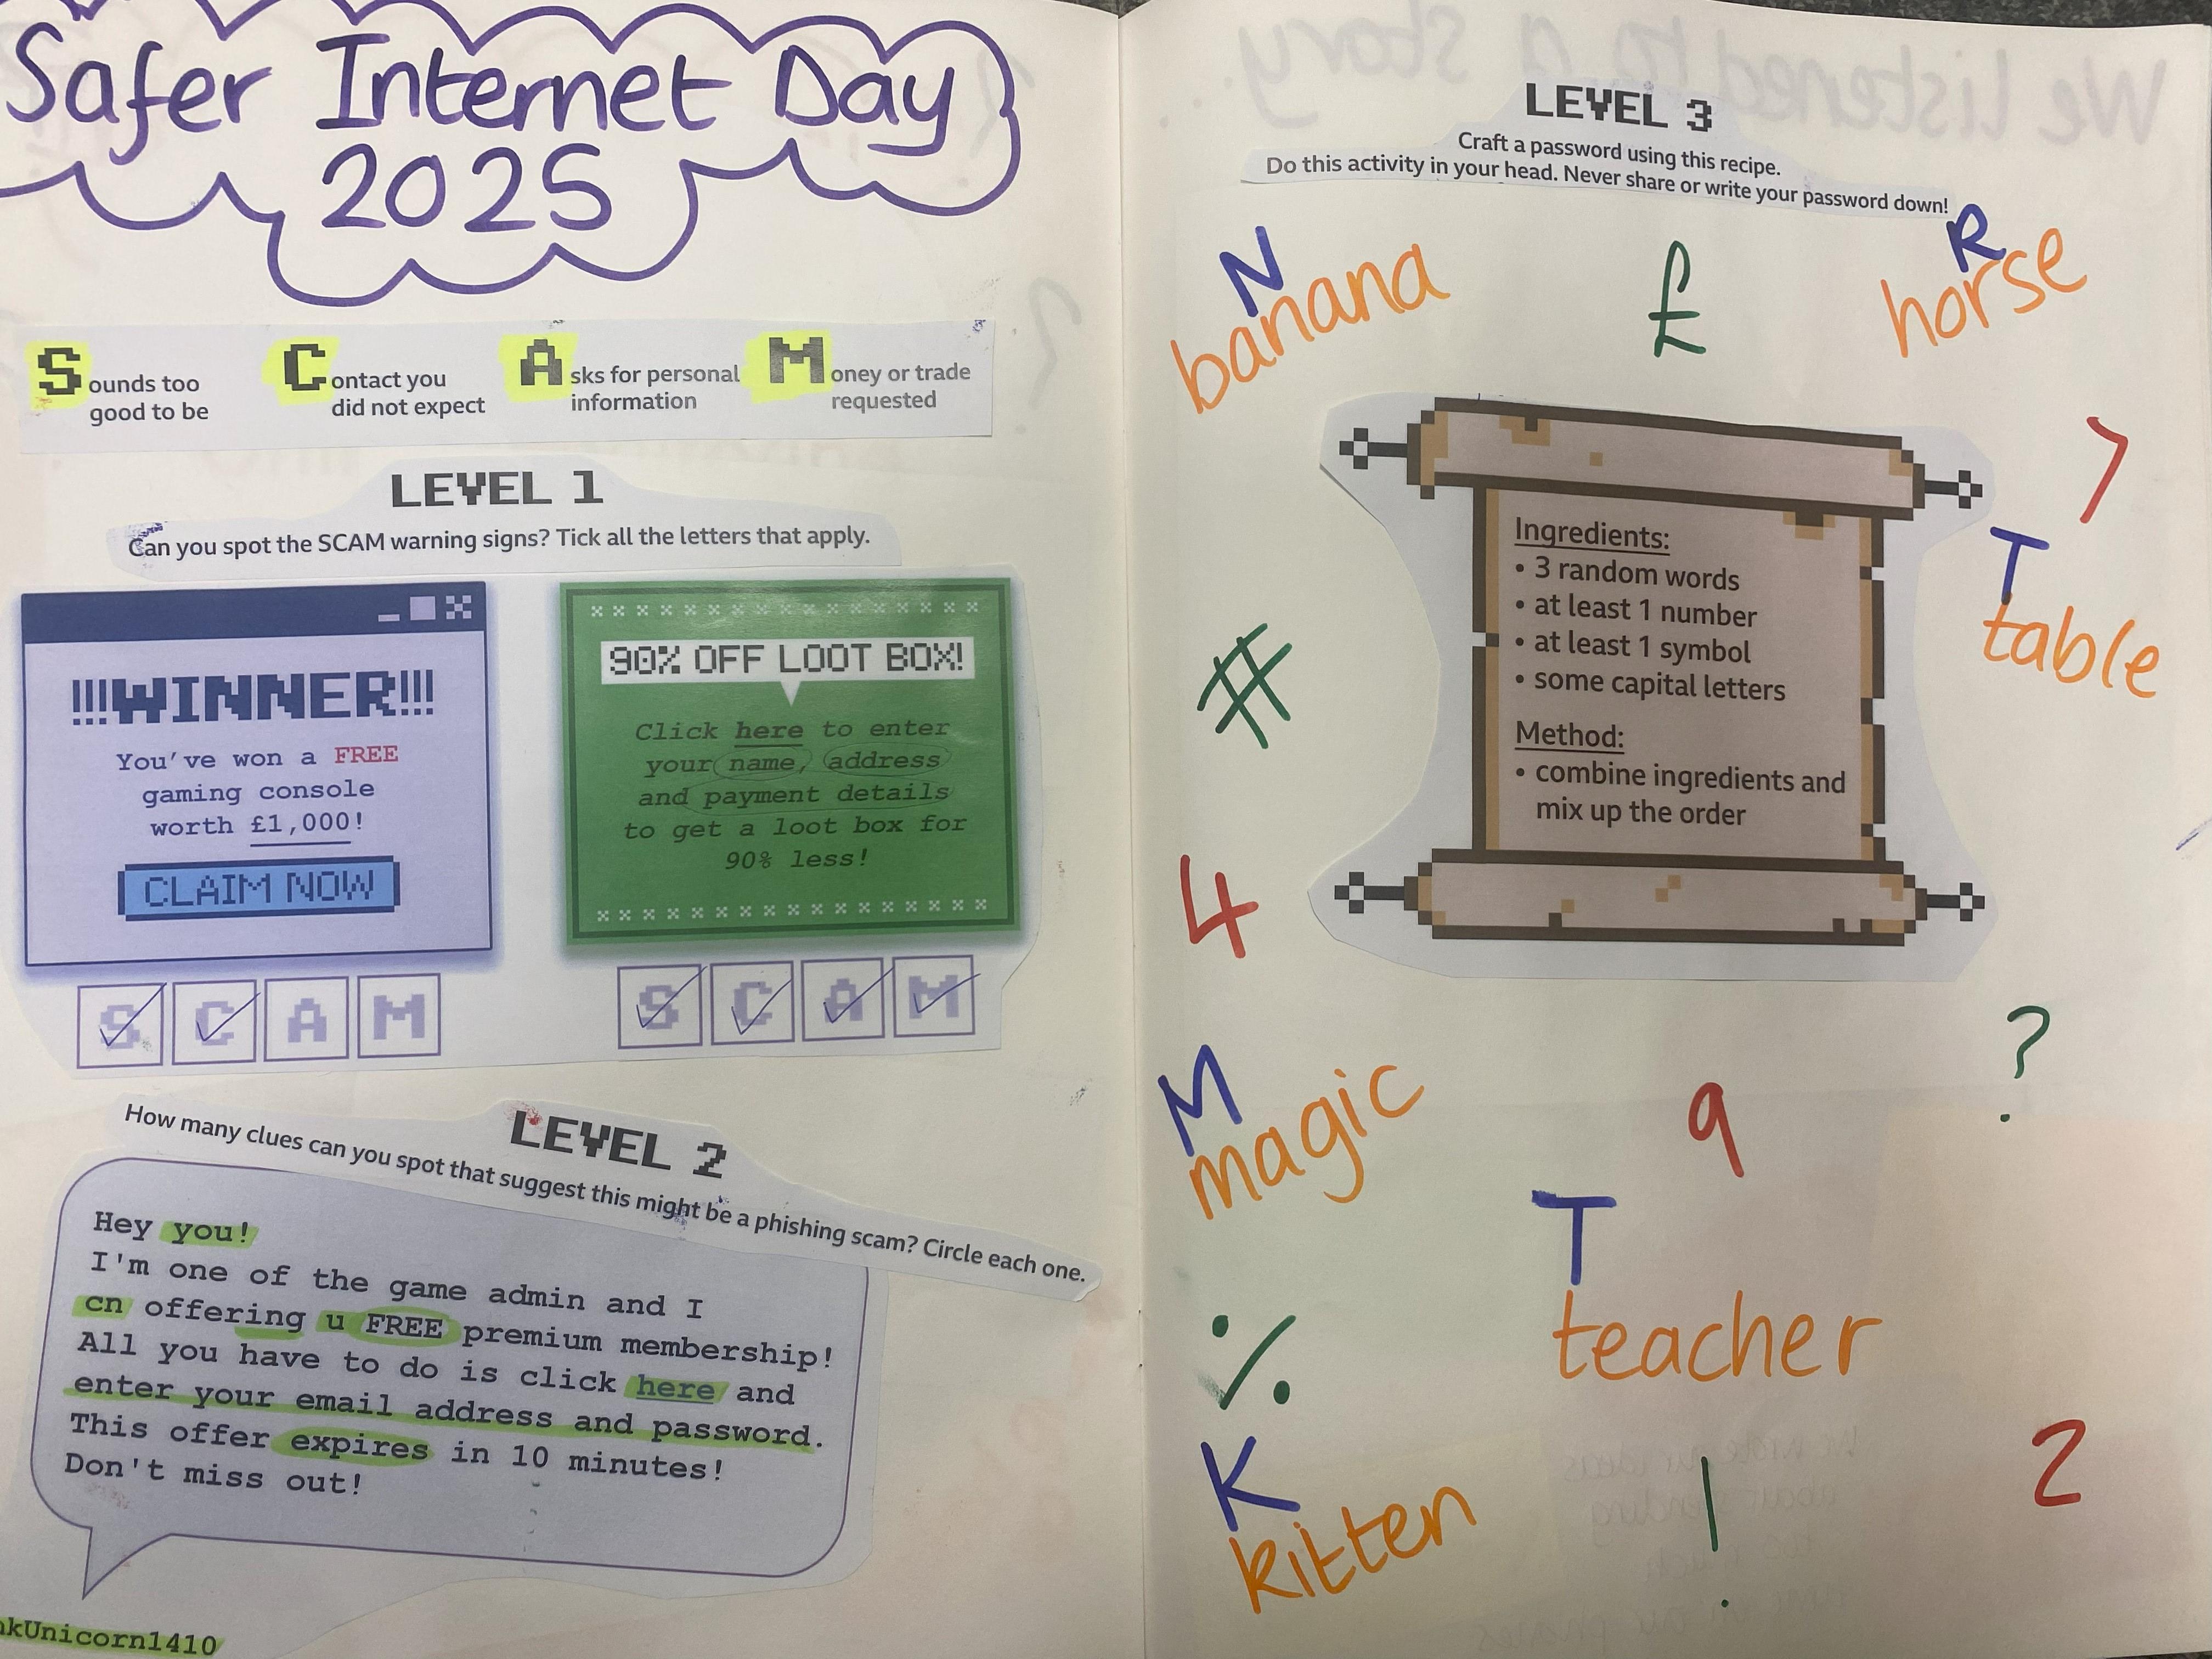 Safer Internet Day
2025
Sounds too
good to be
Contact you
did not expect
Asks for personal
information
Money or trade
requested
LEVEL 1
Can you spot the SCAM warning signs? Tick all the letters that apply.
!!!WINNER!!!
You've won a FREE
gaming console
worth £1,000!
CLAIM NOW
S C A M
90% OFF LOOT BOX!
Click here to enter
your name, address
and payment details
to get a loot box for
90% less!
S C A M
LEVEL 2
How many clues can you spot that suggest this might be a phishing scam? Circle each one.
Hey you!
I'm one of the game admin and I
cn offering u FREE premium membership!
All you have to do is click here and
enter your email address and password.
This offer expires in 10 minutes!
Don't miss out!
kUnicorn1410
We listened to a story.
LEVEL 3
Craft a password using this recipe.
Do this activity in your head. Never share or write your password down!
N
banana
£
R
horse
7
T
table
#
Ingredients:
• 3 random words
• at least 1 number
• at least 1 symbol
• some capital letters
Method:
• combine ingredients and
mix up the order
4
M
magic
9
?
T
teacher
%
K
kitten
!
2